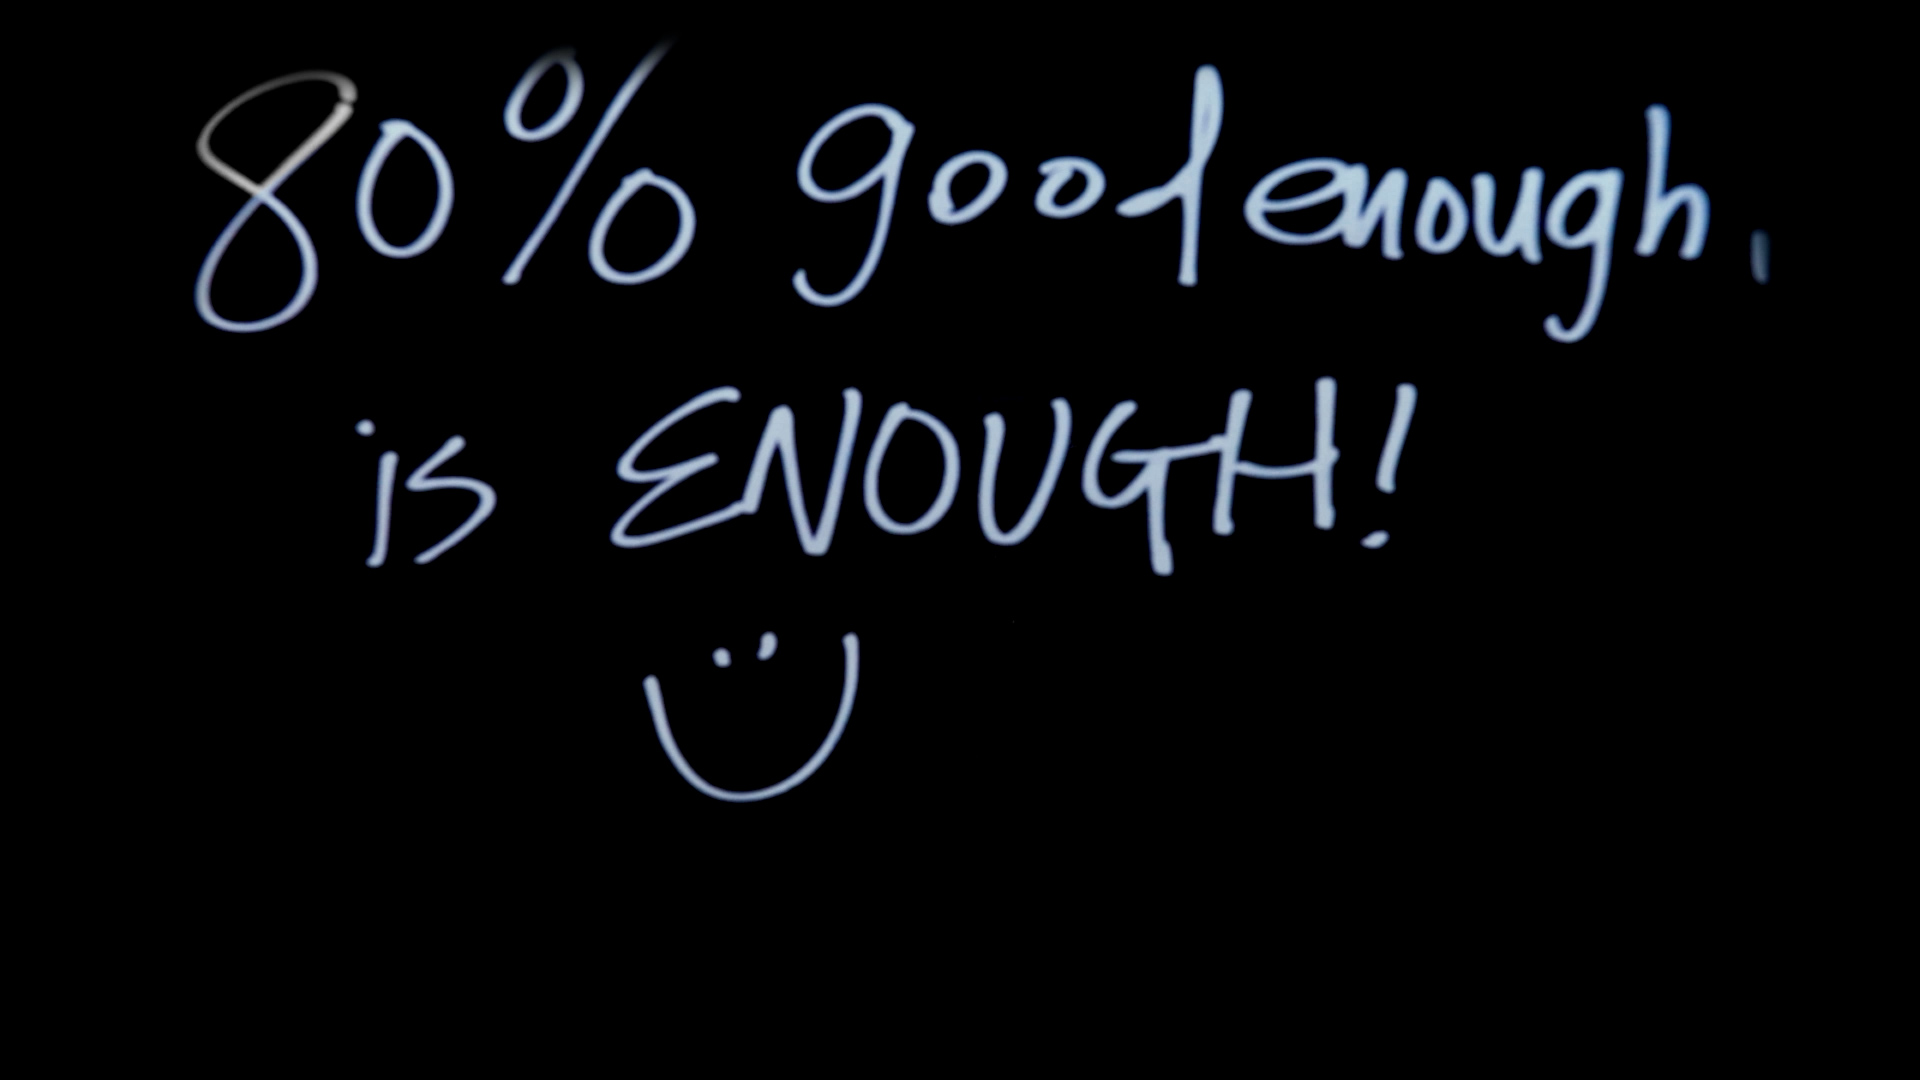 80% good enough,
is ENOUGH!